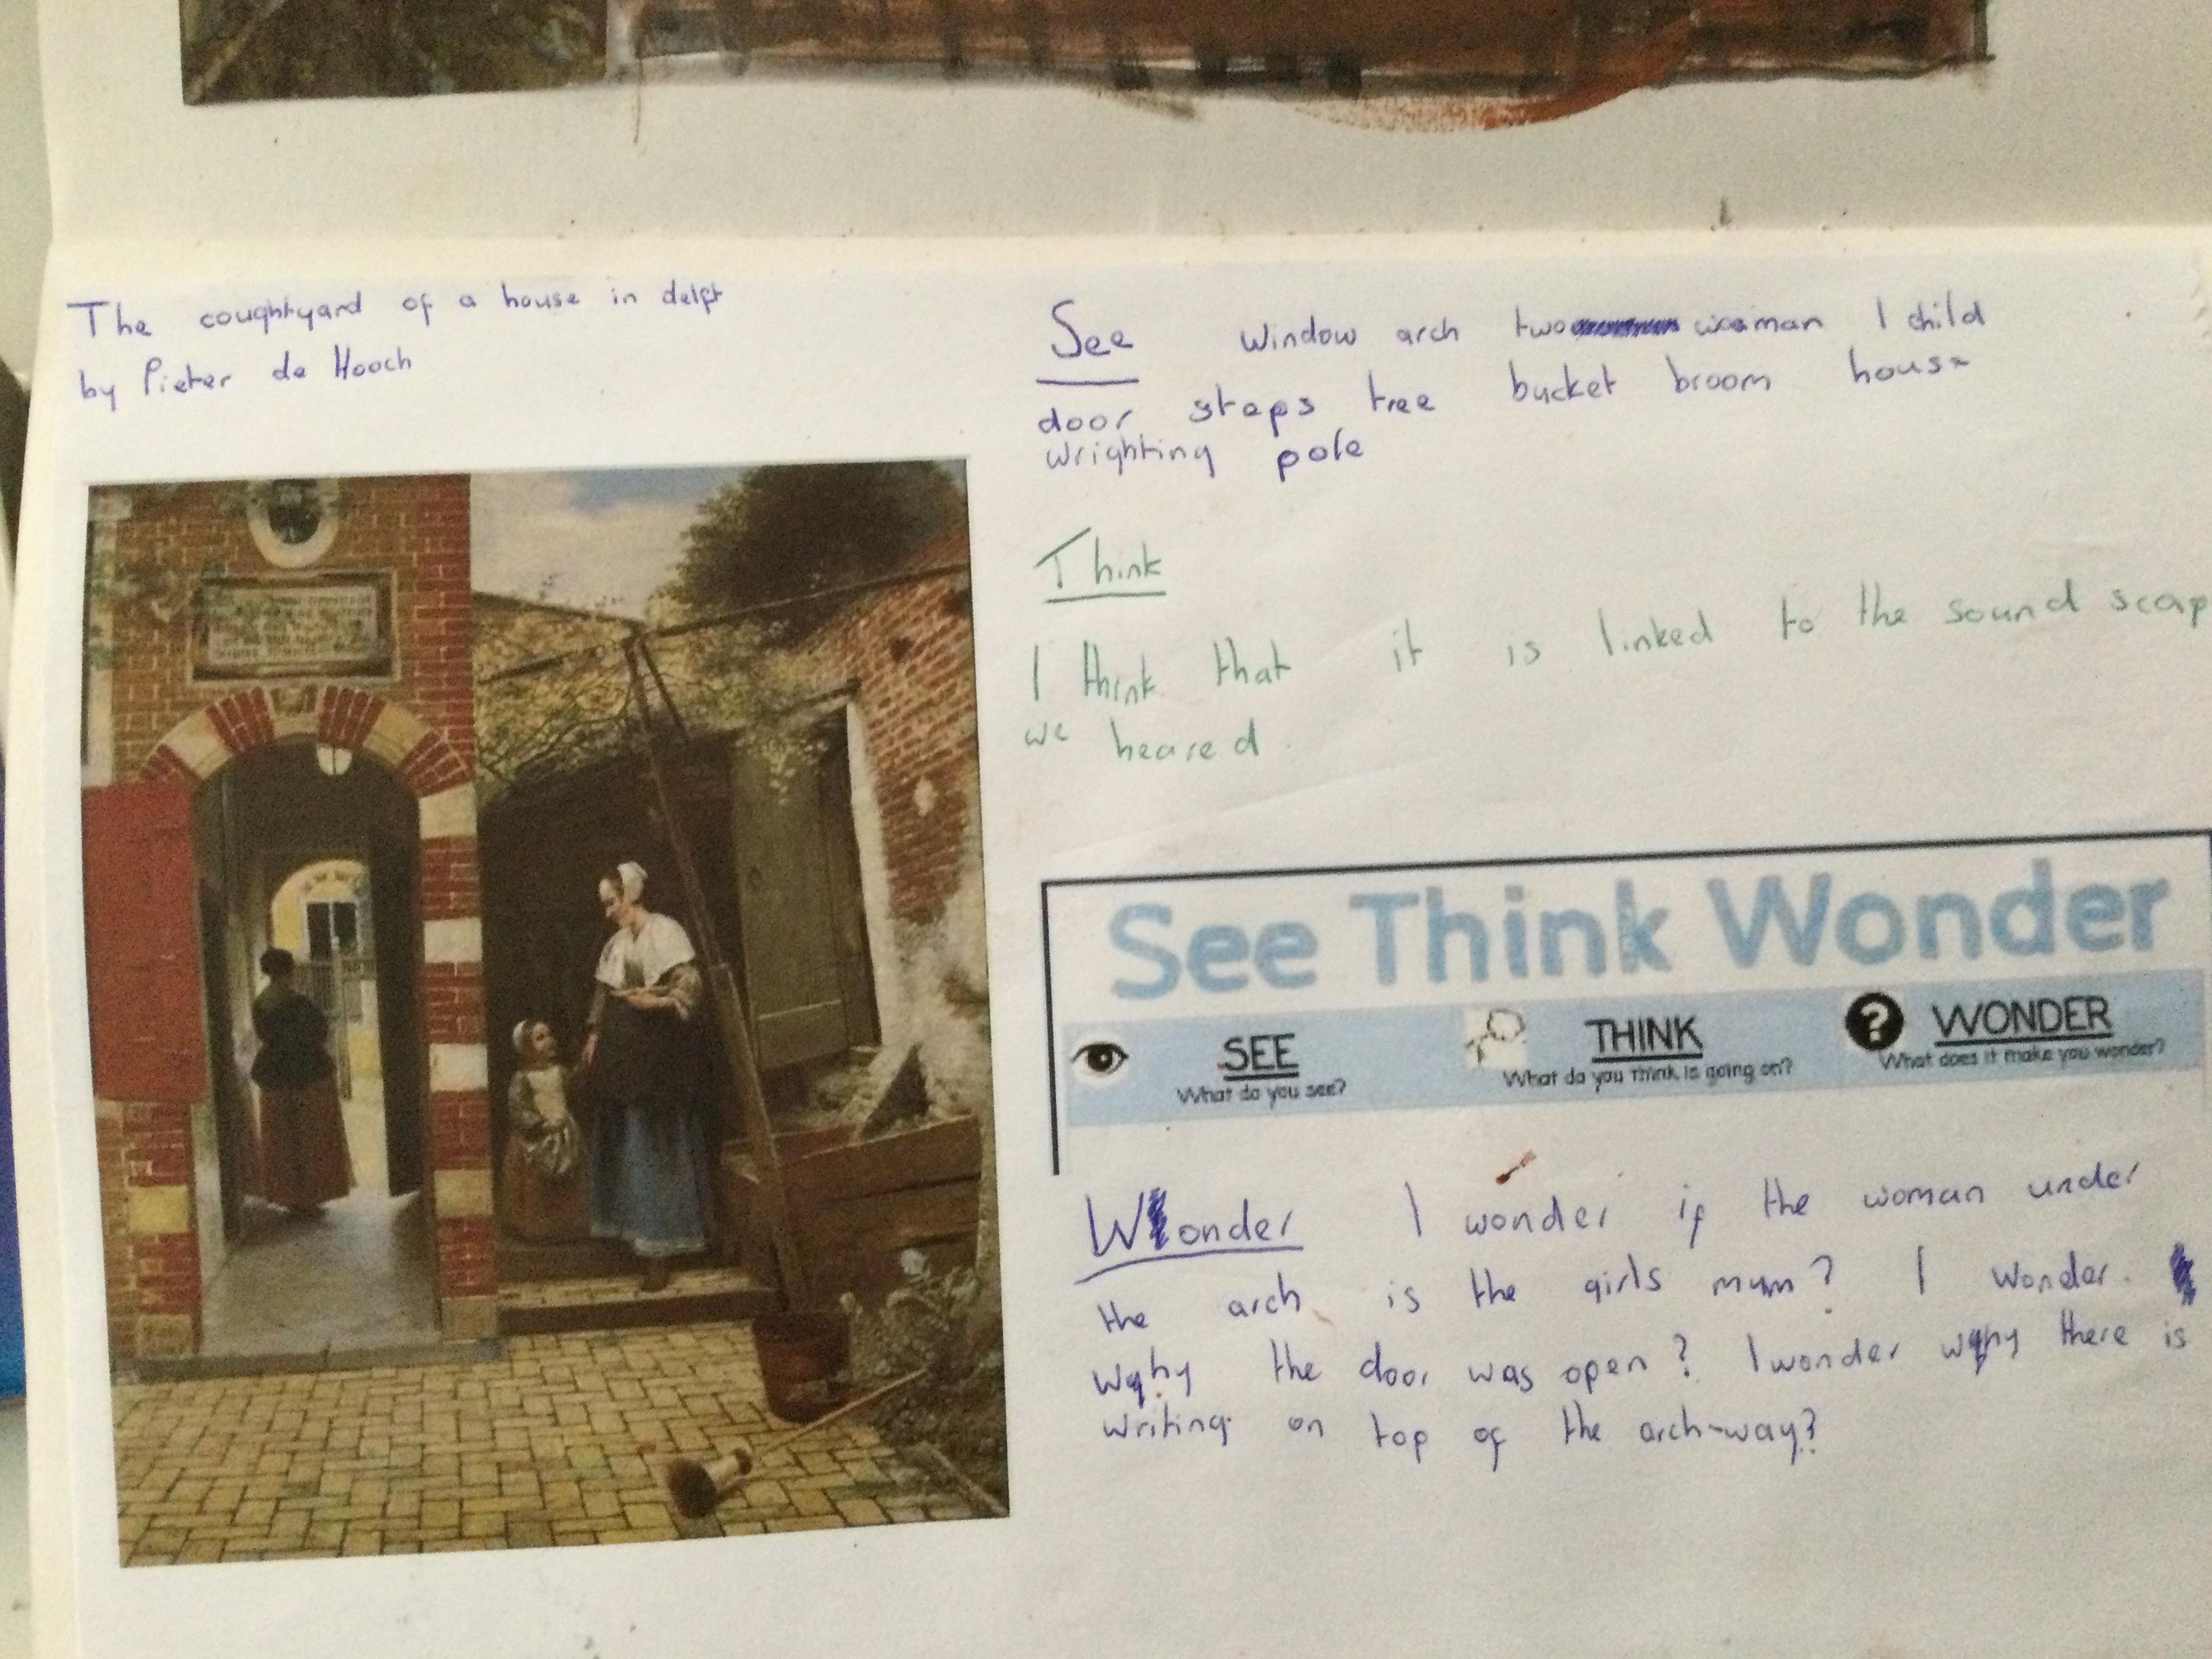 The coughtyard of a house in delft
by Pieter de Hooch
See window arch two woman 1 child
door steps tree bucket broom house
wrighting pole
Think
I think that it is linked to the sound scap
we heared.
See Think Wonder
SEE
What do you see?
THINK
What do you think is going on?
? WONDER
What does it make you wonder?
Wonder I wonder if the woman under
the arch is the girls mum? I wonder.
why the door was open? I wonder why there is
writing on top of the arch-way?